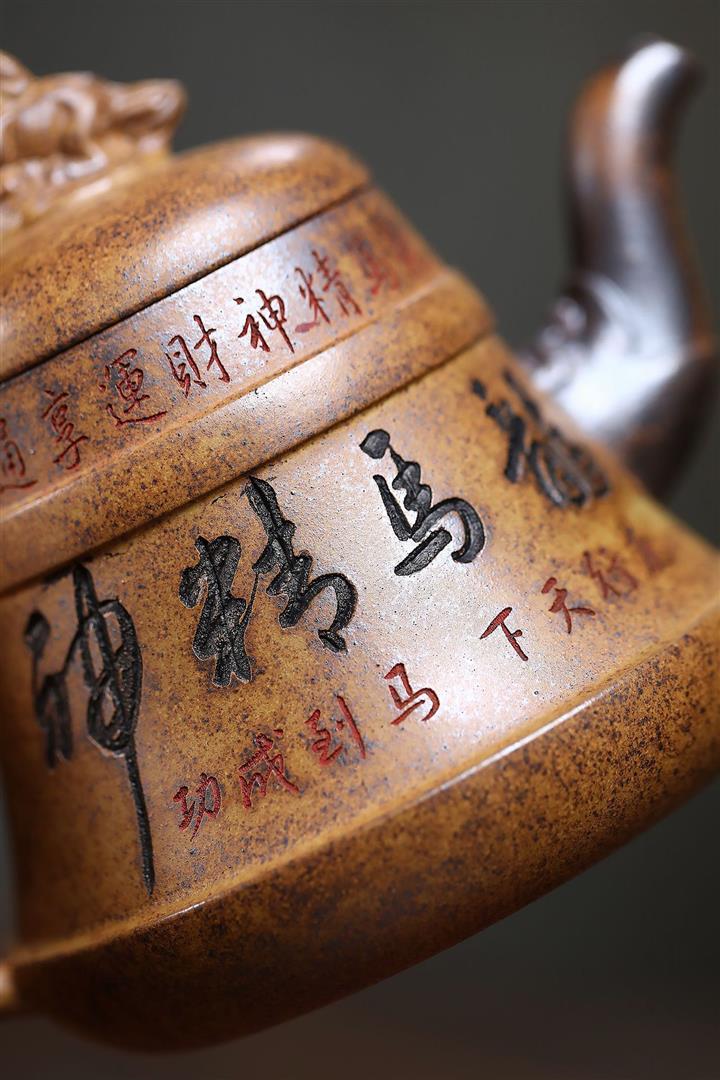 馬精神財運享通
龍馬精神
行天下 马到成功